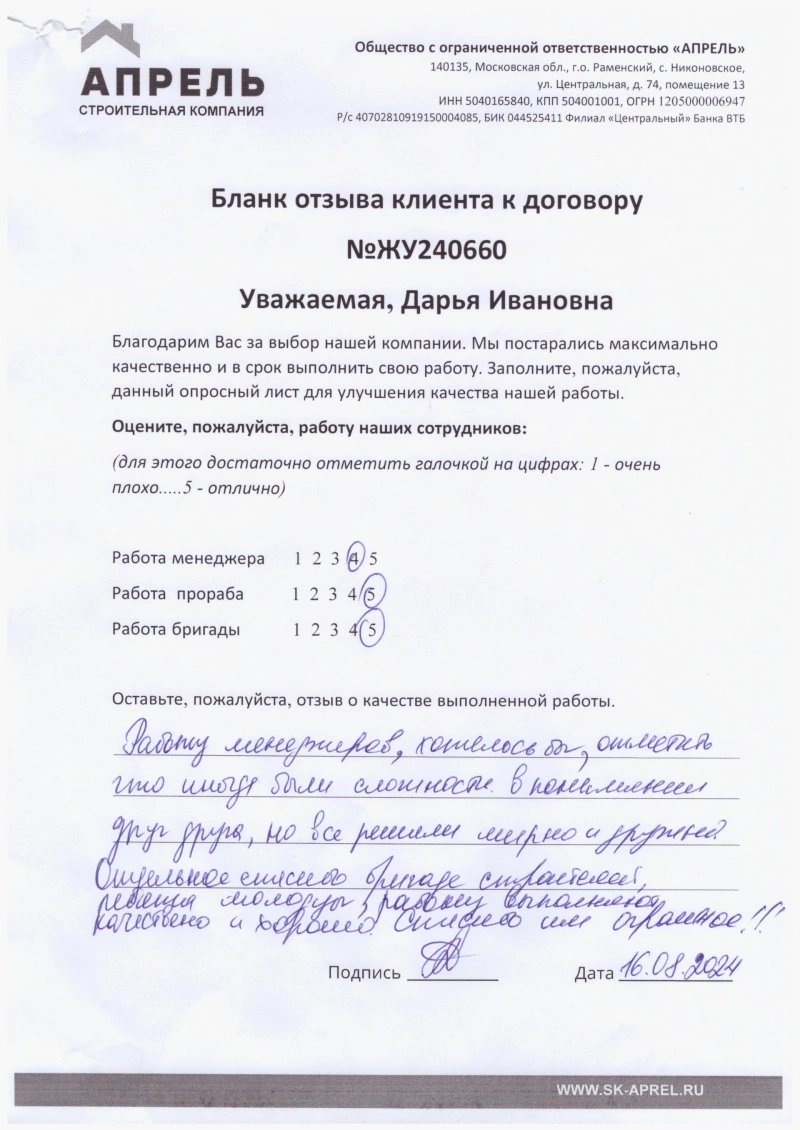 АПРЕЛЬ
СТРОИТЕЛЬНАЯ КОМПАНИЯ
Общество с ограниченной ответственностью «АПРЕЛЬ»
140135, Московская обл., г.о. Раменский, с. Никоновское,
ул. Центральная, д. 74, помещение 13
ИНН 5040165840, КПП 504001001, ОГРН 1205000006947
Р/с 40702810919150004085, БИК 044525411 Филиал «Центральный» Банка ВТБ
Бланк отзыва клиента к договору
№ЖУ240660
Уважаемая, Дарья Ивановна
Благодарим Вас за выбор нашей компании. Мы постарались максимально
качественно и в срок выполнить свою работу. Заполните, пожалуйста,
данный опросный лист для улучшения качества нашей работы.
Оцените, пожалуйста, работу наших сотрудников:
(для этого достаточно отметить галочкой на цифрах: 1 - очень
плохо.....5 - отлично)
Работа менеджера 1 2 3 4 5
Работа прораба 1 2 3 4 5
Работа бригады 1 2 3 4 5
Оставьте, пожалуйста, отзыв о качестве выполненной работы.
Работу менеджеров, хотелось бы, отметить
что иногда были сложности в понимании
друг друга, но все решили мирно и дружно
Отдельное спасибо бригаде строителей,
ребята молодцы, работу выполняют
качествено и хорошо. Спасибо им огромное!!!
Подпись
Дата 16.08.2024
WWW.SK-APREL.RU